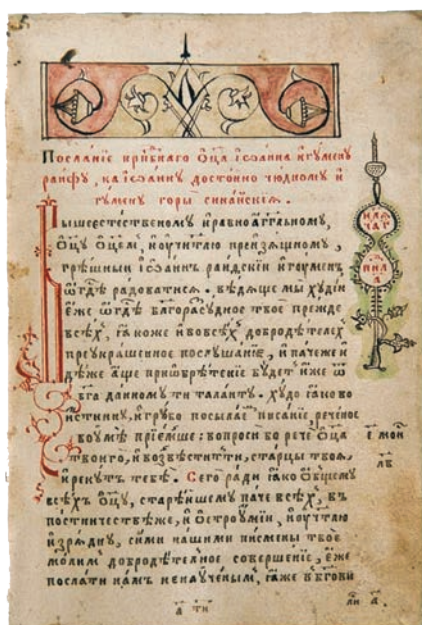 Посланїе прпⷣбнаго ѻ҆ц҃а і҆ѡанна и҆гꙋменꙋ
раифꙋ, ка і҆ѡаннꙋ достоино чюдномꙋ и҆
гꙋменꙋ горы синаиския.
Вышеестественомꙋ и҆ равноаг҃гл҃ьномꙋ,
ѻ҆ц҃ꙋ ѻ҆ц҃ем, и҆ ᲂу҆чителю преизѧщномꙋ,
грѣшныи і҆ѡаннъ раиѳскїи и҆гꙋменъ
ѡ҆ гдⷭ҇ѣ радоватисѧ. вѣдѧще мы хꙋдїи
еже ѡ҆ гдⷭ҇ѣ благорасꙋдное твое прежде
всѣх, ꙗ҆коже и҆ во всѣх добродѣтелех
преꙋкрашенное послꙋшанїе, и҆ паче же и҆
дѣже а҆ще приѡбрѣтенїе бꙋдет иже ѿ
бг҃а данномꙋ ти талантꙋ. хꙋдо ꙗ҆ко во
истиннꙋ, и҆ грꙋбо посылае писанїе реченое
во ᲂу҆мѣ прїемше: вопроси бо рече ѻ҆ц҃а
твоего, и҆ возвѣстит ти, старцы твоя,
и҆ рекꙋт тебѣ. Сего ради ꙗ҆ко ѻ҆бщемꙋ
всѣхъ ѻ҆ц҃ꙋ, старѣишемꙋ паче всѣх, въ
постничествѣ же, и҆ ѻ҆строꙋмїи, и҆ ᲂу҆чителю
и҆зрѧднꙋ, сими нашими писмены твое
молим добродѣтелное совершенїе, еже
послати нам ненаꙋченым, ꙗ҆же в бг҃ови